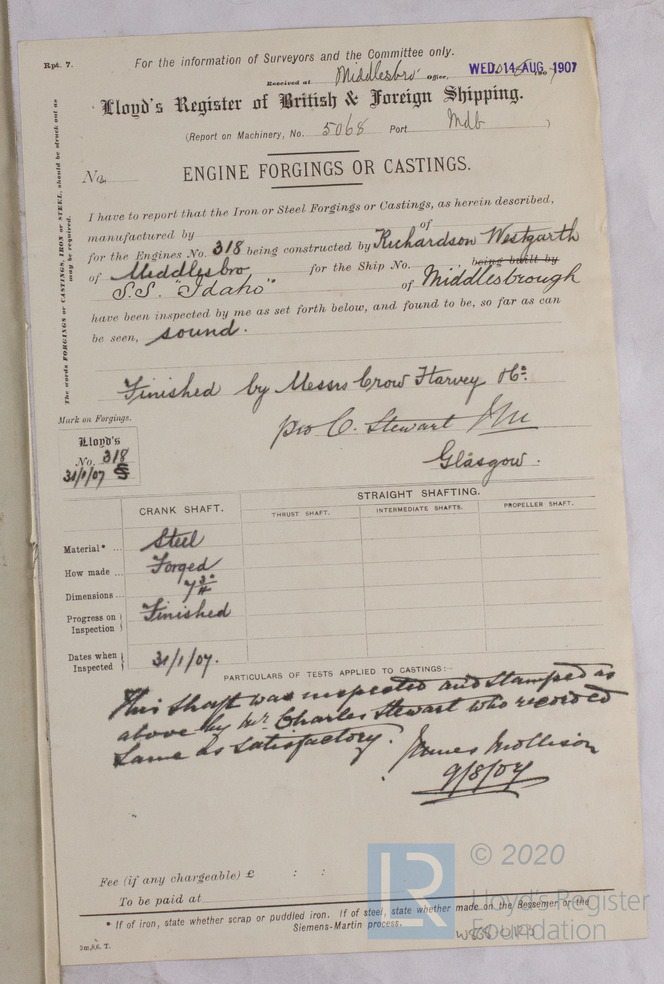 Rpt. 7.
For the information of Surveyors and the Committee only.
Received at Middlesbro' Office, WED. 14 AUG. 1907
Lloyd's Register of British & Foreign Shipping.
(Report on Machinery, No. 5068 Port Mdb )
No.
ENGINE FORGINGS OR CASTINGS.
The words FORGINGS or CASTINGS, IRON or STEEL, should be struck out as may be required.
I have to report that the Iron or Steel Forgings or Castings, as herein described,
manufactured by of
for the Engines No. 318 being constructed by Richardson Westgarth
of Middlesbro, for the Ship No. , being built by
S.S. "Idaho" of Middlesbrough
have been inspected by me as set forth below, and found to be, so far as can
be seen, sound.
Finished by Messrs Crow Harvey &Co.
pro C. Stewart
Glasgow.
Mark on Forgings.
Lloyd's
No. 318
31/1/07
CRANK SHAFT.
STRAIGHT SHAFTING.
THRUST SHAFT. INTERMEDIATE SHAFTS. PROPELLER SHAFT.
Material* ... Steel
How made ... Forged
Dimensions ... 7 3/4"
Progress on Inspection Finished
Dates when Inspected 31/1/07.
PARTICULARS OF TESTS APPLIED TO CASTINGS:—
This shaft was inspected and stamped as
above by Mr. Charles Stewart who recorded
same as satisfactory. James Mollison
9/8/07
Fee (if any chargeable) £ : :
To be paid at
* If of iron, state whether scrap or puddled iron. If of steel, state whether made on the Bessemer or the
Siemens-Martin process.
LR
© 2020
Lloyd's Register
Foundation